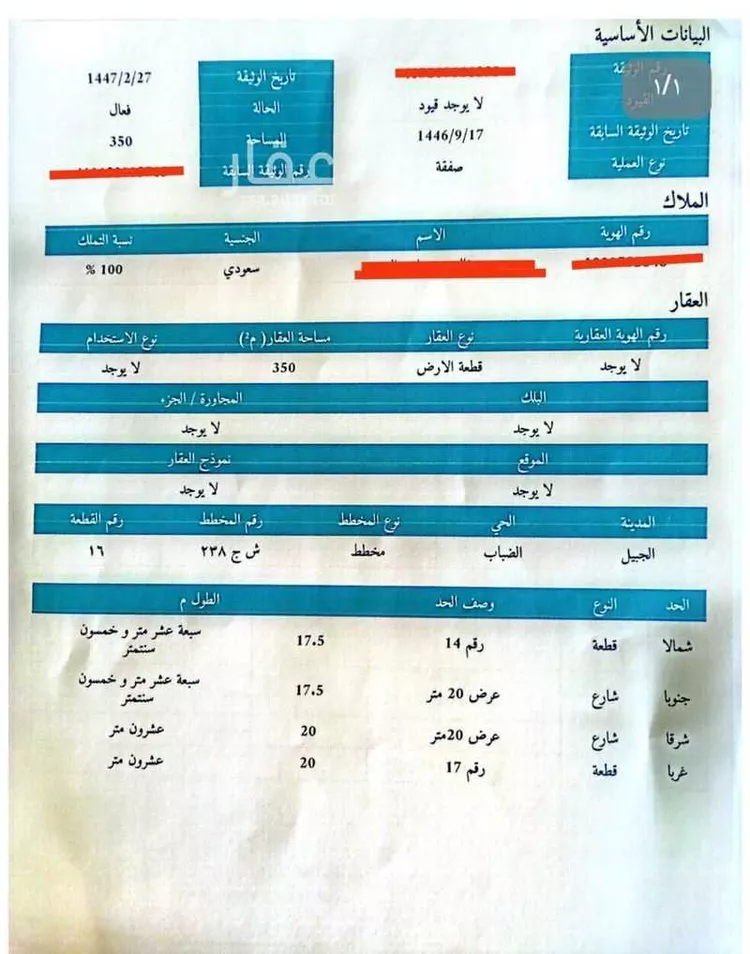 البيانات الأساسية
رقم الوثيقة تاريخ الوثيقة 1447/2/27
١/١
القيود لا يوجد قيود الحالة فعال
تاريخ الوثيقة السابقة 1446/9/17 المساحة 350
نوع العملية صفقة رقم الوثيقة السابقة
عقار
sa.aqar.fm
الملاك
رقم الهوية الاسم الجنسية نسبة التملك
سعودي 100 %
العقار
رقم الهوية العقارية نوع العقار مساحة العقار( م²) نوع الاستخدام
لا يوجد قطعة الارض 350 لا يوجد
البلك المجاورة / الجزء
لا يوجد لا يوجد
الموقع نموذج العقار
لا يوجد لا يوجد
المدينة الحي نوع المخطط رقم المخطط رقم القطعة
الجبيل الضباب مخطط ش ج ٢٣٨ ١٦
الحد النوع وصف الحد الطول م
شمالا قطعة رقم 14 17.5 سبعة عشر متر و خمسون
سنتمتر
جنوبا شارع عرض 20 متر 17.5 سبعة عشر متر و خمسون
سنتمتر
شرقا شارع عرض 20متر 20 عشرون متر
غربا قطعة رقم 17 20 عشرون متر